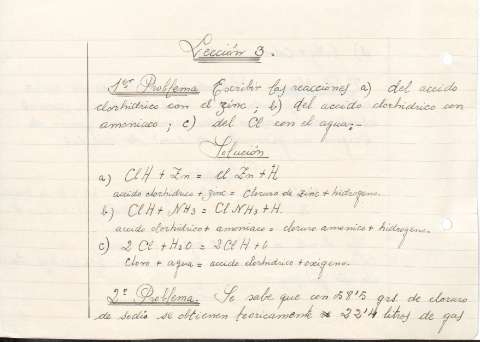 Lección 3.
1er Problema Escribir las reacciones a) del acido
clorhidrico con el zinc; b) del acido clorhidrico con
amoniaco; c) del Cl con el agua;-
Solución
a) ClH + Zn = Cl Zn + H
acido clorhidrico + zinc = cloruro de zinc + hidrogeno.
b) ClH + NH3 = Cl NH3 + H.
acido clorhidrico + amoniaco = cloruro amonico + hidrogeno.
c) 2 Cl + H2O = 2 ClH + O
cloro + agua = acido clorhidrico + oxigeno.
2º Problema. Se sabe que con 58'5 grs. de cloruro
de sodio se obtienen teoricamente 22'4 litros de gas